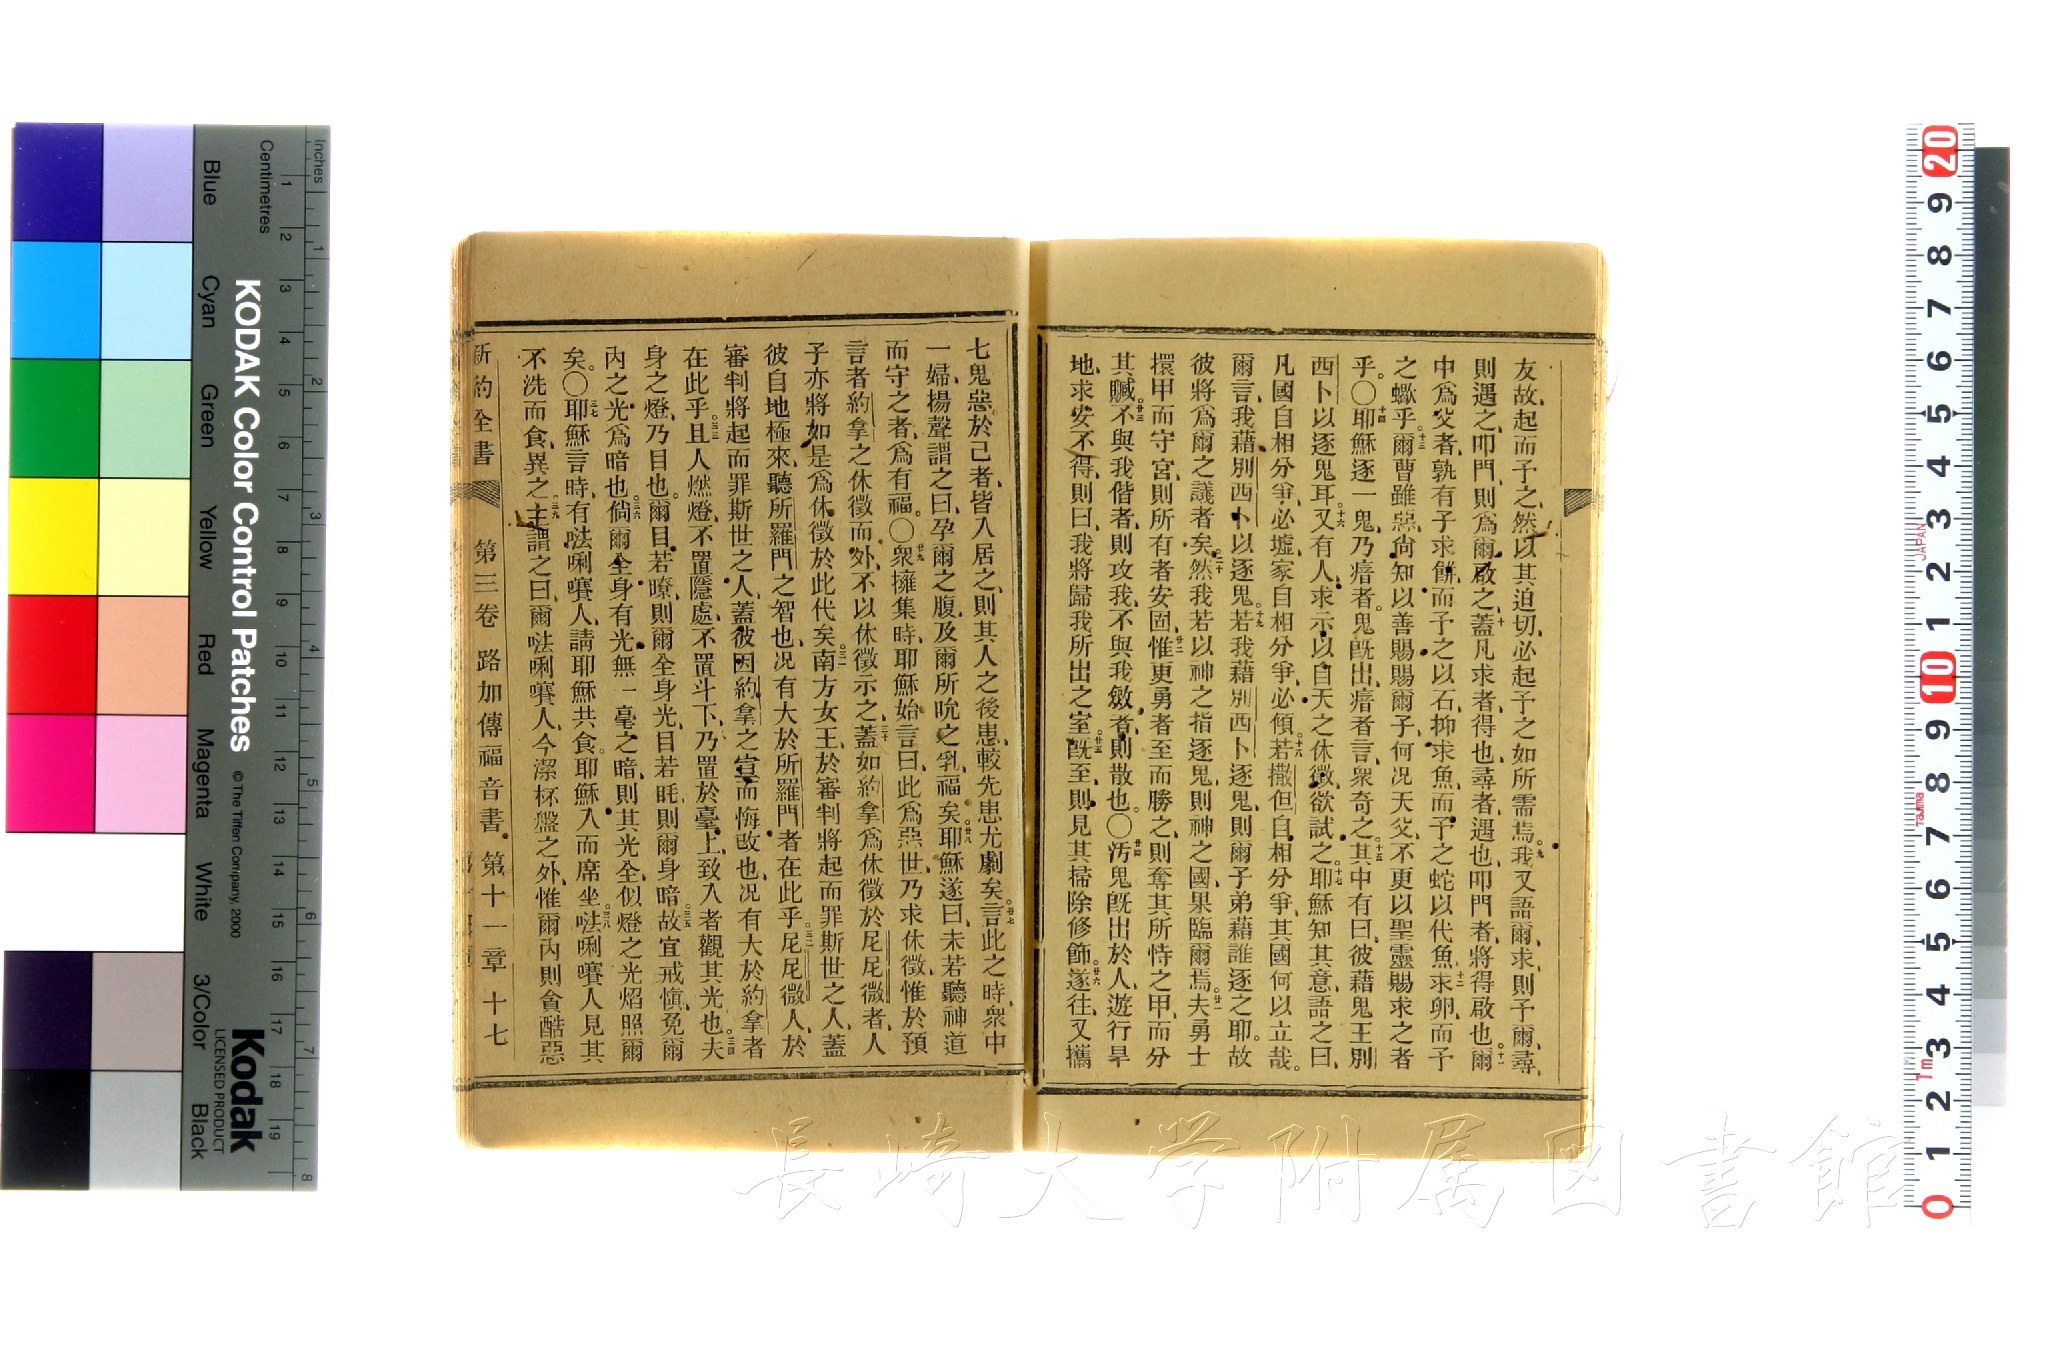 友故、起而予之、然以其迫切、必起予之如所需焉。九我又語爾、求則予爾、尋
則遇之、叩門、則爲爾啟之、十蓋凡求者、得也、尋者、遇也、叩門者、將得啟也。十一爾
中爲父者、孰有子求餅、而予之以石、抑求魚、而予之蛇以代魚、十二求卵、而予
之蠍乎、十三爾曹雖惡、尙知以善賜賜爾子、何況天父、不更以聖靈賜求之者
乎。〇十四耶穌逐一鬼、乃瘖者。鬼既出、瘖者言、衆奇之。十五其中有曰、彼藉鬼王別
西卜以逐鬼耳、十六又有人、求示以自天之休徵、欲試之。十七耶穌知其意、語之曰、
凡國自相分爭、必墟、家自相分爭、必傾。十八若撒但自相分爭、其國何以立哉。
爾言、我藉別西卜以逐鬼。十九若我藉別西卜逐鬼、則爾子弟藉誰逐之耶。故
彼將爲爾之議者矣、二十然我若以神之指逐鬼、則神之國、果臨爾焉。廿一夫勇士
擐甲而守宮、則所有者安固、廿二惟更勇者至而勝之、則奪其所恃之甲、而分
其贓。廿三不與我偕者、則攻我、不與我斂者、則散也。〇廿四汚鬼既出於人、遊行旱
地、求安不得、則曰、我將歸我所出之室。廿五既至、則見其掃除修飾。廿六遂往、又攜
七鬼惡於己者、皆入居之、則其人之後患、較先患尤劇矣。廿七言此之時、衆中
一婦、楊聲謂之曰、孕爾之腹、及爾所吮之乳、福矣。廿八耶穌遂曰、未若聽神道
而守之者、爲有福。〇廿九衆擁集時、耶穌始言曰、此爲惡世、乃求休徵、惟於預
言者約拿之休徵而外、不以休徵示之、三十蓋如約拿爲休徵於尼尼微者、人
子亦將如是爲休徵於此代矣。三一南方女王、於審判將起而罪斯世之人、蓋
彼自地極來、聽所羅門之智也、況有大於所羅門者在此乎。三二尼尼微人、於
審判將起而罪斯世之人、蓋彼因約拿之宣而悔改也、況有大於約拿者
在此乎。三三且人燃燈、不置隱處、不置斗下、乃置於臺上、致入者觀其光也。三四夫
身之燈、乃目也。爾目若暸、則爾全身光、目若眊、則爾身暗。三五故宜戒愼、免爾
內之光爲暗也。三六倘爾全身有光、無一毫之暗、則其光全、似燈之光焰照爾
矣。〇三七耶穌言時、有𠵽唎賽人、請耶穌共食。耶穌入而席坐。三八𠵽唎賽人見其
不洗而食、異之。三九主謂之曰、爾𠵽唎賽人、今潔杯盤之外、惟爾內則貪酷惡
新約全書 第三卷 路加傳福音書 第十一章 十七
KODAK Color Control Patches
© The Tiffen Company, 2000
Kodak
LICENSED PRODUCT
Inches
Centimetres
Blue Cyan Green Yellow Red Magenta White 3/Color Black
長崎大学附属図書館
JAPAN
Tajima
1m